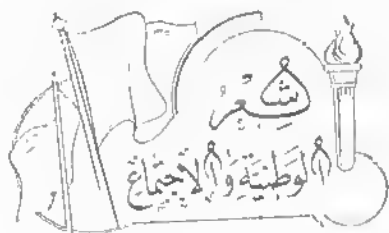 شِعْرُ
الوَطنِيَّةِ وَالاجْتِمَاعِ